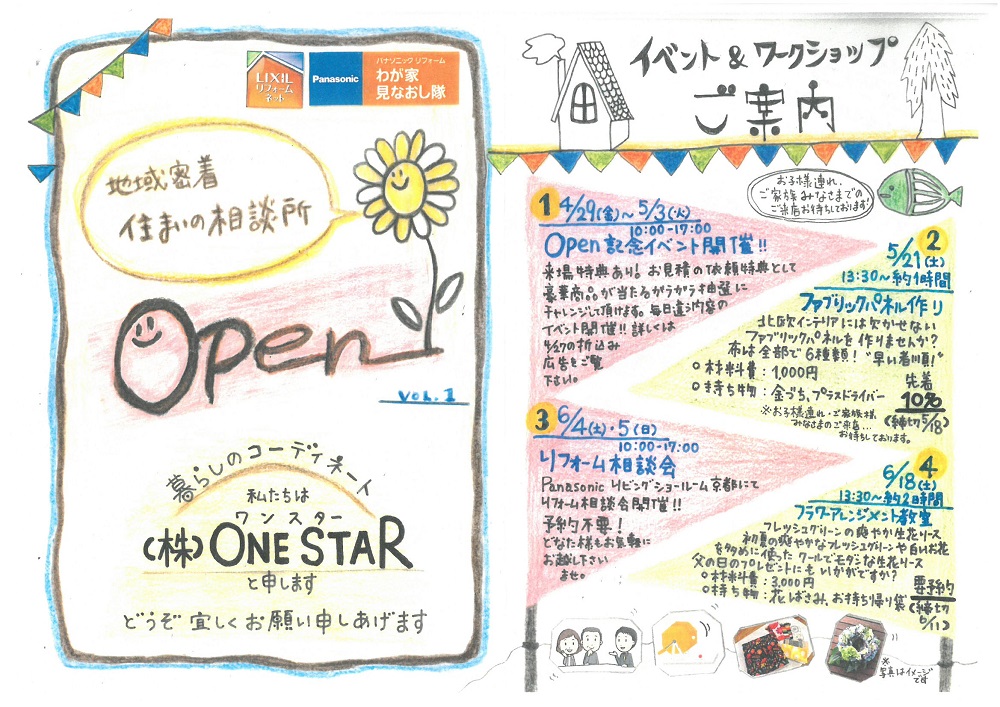 LIXIL
リフォーム
ネット
Panasonic
パナソニック リフォーム
わが家
見なおし隊
地域密着
住まいの相談所
Open
VOL.1
暮らしのコーディネート
私たちは
ワンスター
(株)ONE STAR
と申します
どうぞ宜しくお願い申しあげます
イベント&ワークショップ
ご案内
お子様連れ・
ご家族みなさまでの
ご来店お待ちしております!
1 4/29(金)~5/3(火)
10:00-17:00
Open記念イベント開催!!
来場特典あり!お見積の依頼特典として
豪華商品が当たるがらがら抽選に
チャレンジして頂けます。毎日違う内容の
イベント開催!!詳しくは
4/27の折込み
広告をご覧
下さい。
2
5/21(土)
13:30~約1時間
ファブリックパネル作り
北欧インテリアには欠かせない
ファブリックパネルを作りませんか?
布は全部で6種類!"早い者順!"
○材料費:1,000円
○持ち物:金づち、プラスドライバー
先着
10名
(締切5/18)
※お子様連れ・ご家族様
みなさまのご来店...
お待ちしております。
3 6/4(土)・5(日)
10:00-17:00
リフォーム相談会
Panasonicリビングショールーム京都にて
リフォーム相談会開催!!
予約不要!
どなた様もお気軽に
お越し下さい
ませ。
4
6/18(土)
13:30~約2時間
フラワーアレンジメント教室
フレッシュグリーンの爽やか生花リース
初夏の爽やかなフレッシュグリーンや白いお花
を多めに使ったクールでモダンな生花リース
父の日のプレゼントにもいかがですか?
○材料費:3,000円
○持ち物:花ばさみ、お持ち帰り袋
要予約
(締切
6/11)
※
写真はイメージ
です